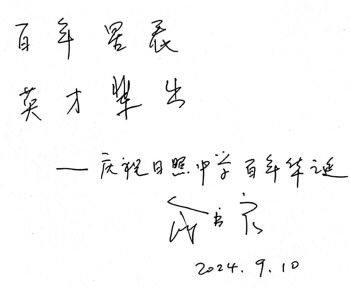 百年星辰
英才辈出
——庆祝日照中学百年华诞
2024.9.10